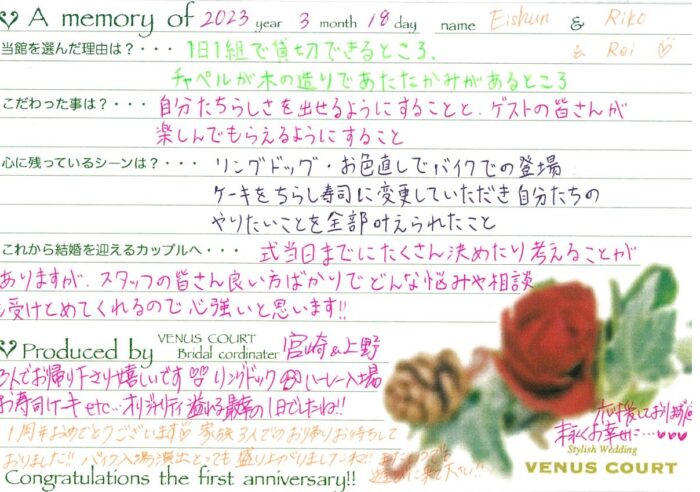 A memory of 2023 year 3 month 18 day name Eishun & Riko
& Rei
当館を選んだ理由は？・・・ 1日1組で貸切できるところ、
チャペルが木の造りであたたかみがあるところ
こだわった事は？・・・ 自分たちらしさを出せるようにすることと、ゲストの皆さんが
楽しんでもらえるようにすること
心に残っているシーンは？・・・ リングドッグ・お色直しでバイクでの登場
ケーキをちらし寿司に変更していただき自分たちの
やりたいことを全部叶えられたこと
これから結婚を迎えるカップルへ・・・ 式当日までにたくさん決めたり考えることが
ありますが、スタッフの皆さん良い方ばかりでどんな悩みや相談
受けとめてくれるので心強いと思います!!
Produced by VENUS COURT
Bridal cordinater 宮崎&上野
3人でお帰り下さり嬉しいです♡♡ リングドック ハーレー入場
お寿司ケーキ etc… オリジナリティ溢れる最幸の1日でしたね!!
1周年おめでとうございます♡ 家族3人でのお帰りお待ちして
おりました!! バイク入場演出とっても盛り上がりましたね!!
遊びに来て下さい!!
応援しております
末永くお幸せに…♥♥♥
Congratulations the first anniversary!!
Stylish Wedding
VENUS COURT